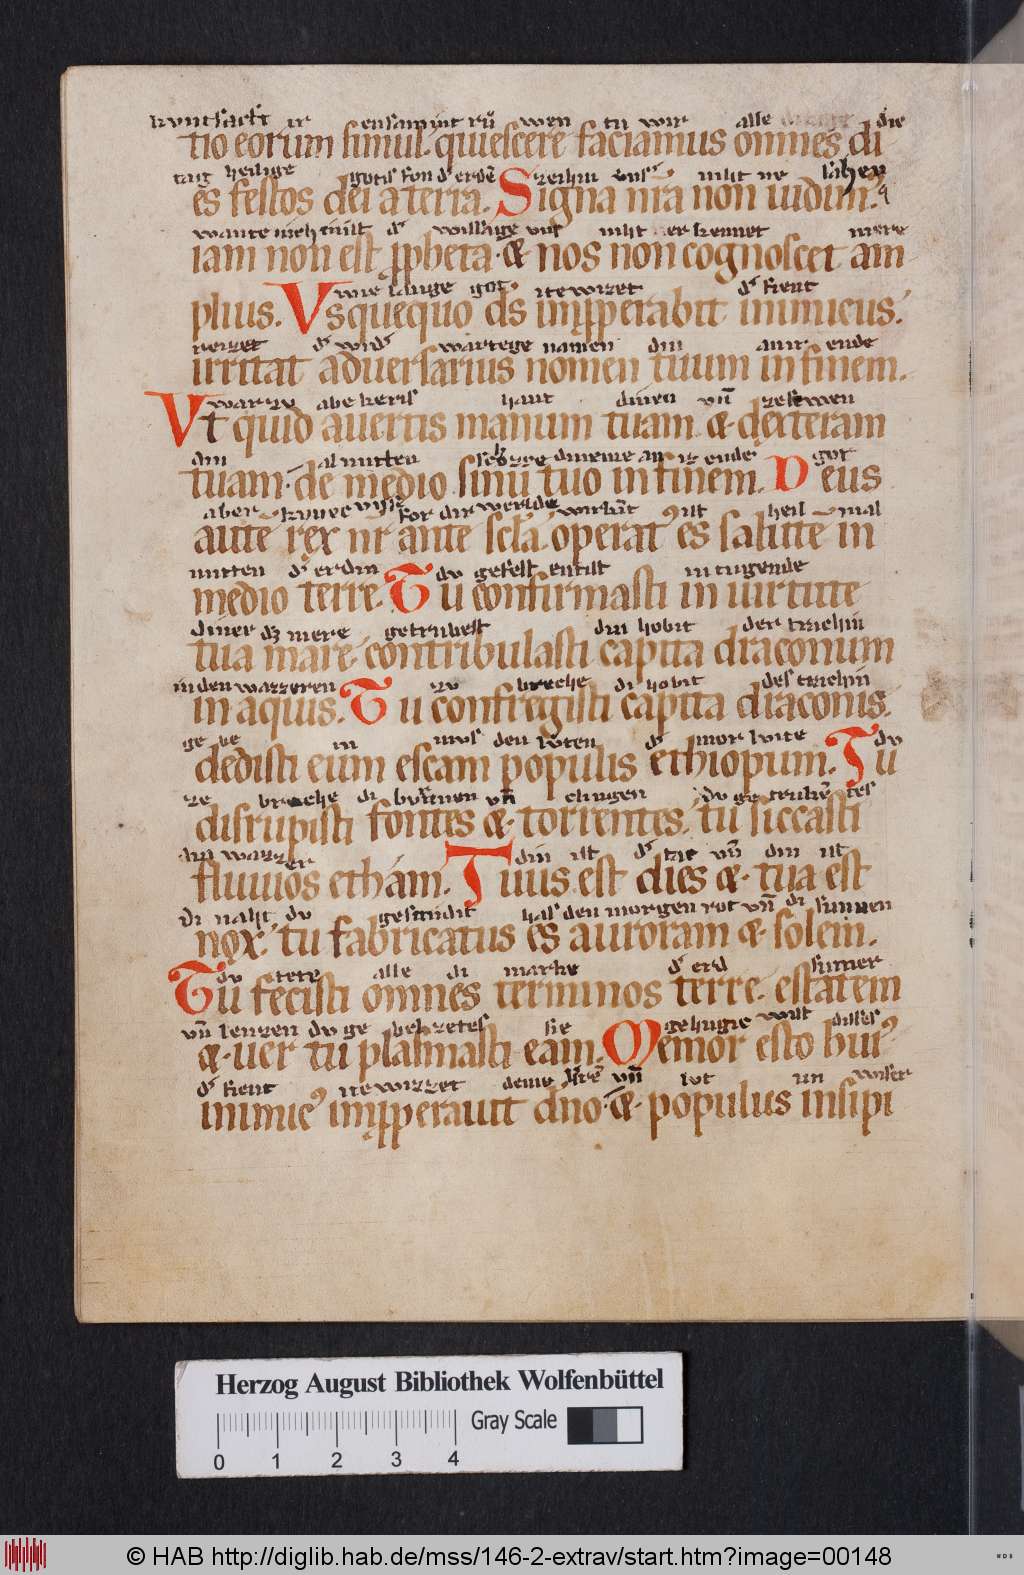 kuntsacft ir ensamint rů wen tu wir alle die
tio eorum simul. quiescere faciamus omnes di
tag heilige gotis fon d' erdē zeihin uns' niht ne sahen
es festos dei a terra. Signa nr̄a non uidim'.
wante nieh nist d' wissage vns niht der kennet mere
iam non est ꝓpheta· & nos non cognoscet am
wie lange got itewizet d' fient
plius. Vsquequo ds̄ imꝓperabit inimicus.
reizet d' wid' wartege namen din anir ende
irritat aduersarius nomen tuum in finem.
warzv abe keris hant dinen vn̄ zeswen
Vt quid auertis manum tuam & dexteram
din al mitten dineme an iz ende got
tuam· de medio sinū tuo in finem. Deus
aber kunec for dir werlde wirkēt ist heil
autē rex nr̄ ante sc̄la. operat' es salutē in
mitten d' erdin dv gefest entist in tugende
medio terre. Tu confirmasti in uirtute
diner dz mere getrubest din hobit der trachin
tua mare. contribulasti capita draconum
in den wazzeren zv breche di hobit des trachin
in aquis. Tu confregisti capita draconis.
ge be in mvs den lvten d' mor lvite dv
dedisti eum escam populis ethiopum. Tu
ze breche di brūnen vn̄ clingen dv ge trukē tes
disrupisti fontes & torrentes. tu siccasti
din wazzer din ist d' tac vn̄ din ist
fluuios etham. Tuus est dies &· tua est
di naht dv gescudit has den morgen rot vn̄ di sunnen
nox. tu fabricatus es auroram & solem.
dv tete alle di marke d' erd sumer
Tu fecisti omnes terminos terre. estatem
vn̄ lenzen dv ge behzetes sie gehugic wist disses
&· uer tu plasmasti eam. Memor esto hui'
d' fient itewizzet deme vn̄ lvt un wiser
inimic' imꝓperauit dn̄o· & populus insipi
Herzog August Bibliothek Wolfenbüttel
Gray Scale
0 1 2 3 4
© HAB http://diglib.hab.de/mss/146-2-extrav/start.htm?image=00148